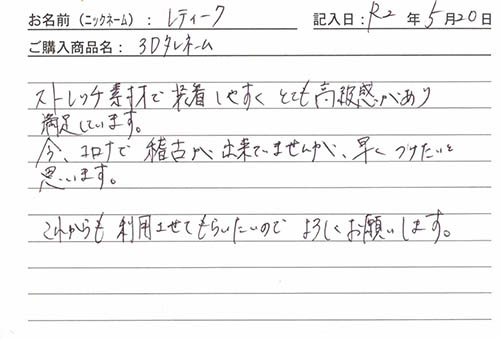 お名前（ニックネーム）：レティーク 記入日：R2 年 5 月 20 日
ご購入商品名：3Dタレネーム
ストレッチ素材で装着しやすくとても高級感があり
満足しています。
今、コロナで稽古が出来ていませんが、早くつけたいと
思います。
これからも利用させてもらいたいのでよろしくお願いします。